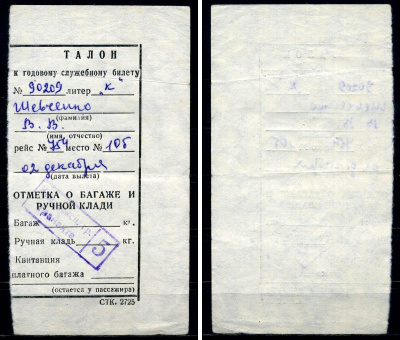 ТАЛОН
к годовому служебному билету
№ 90209 литер "К"
Шевченко
(фамилия)
В. В.
(имя, отчество)
рейс № 754 место № 10Б
02 декабря
(дата вылета)
ОТМЕТКА О БАГАЖЕ И
РУЧНОЙ КЛАДИ
Багаж кг.
Ручная кладь кг.
5
Квитанция
платного багажа
(остается у пассажира)
СТК. 2725